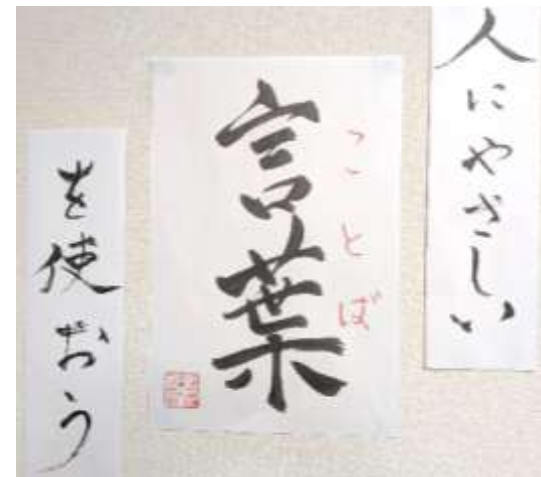 人にやさしい
言葉
ことば
を使おう